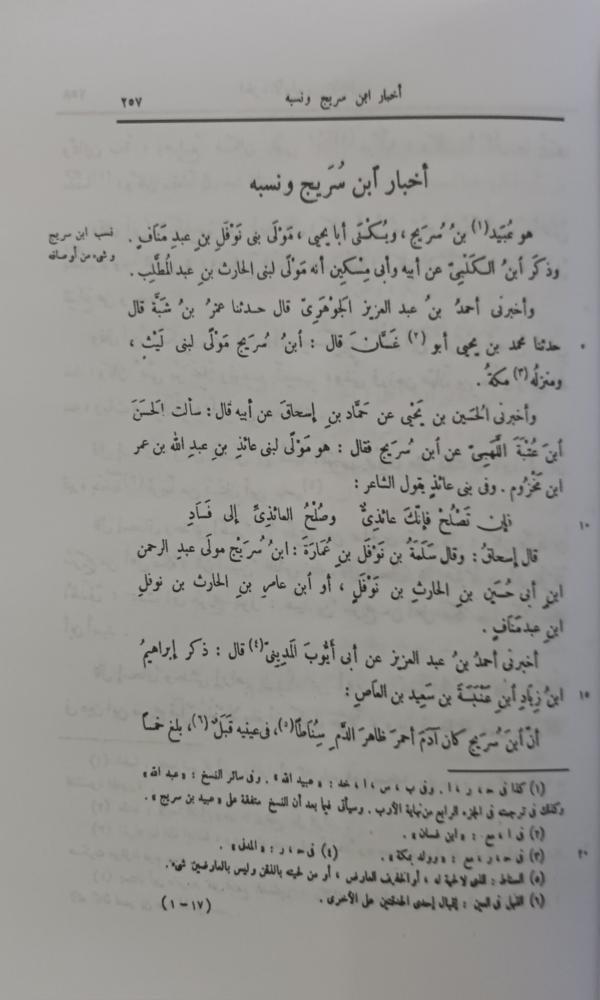 أخبار ابن سريج ونسبه ٢٥٧
أخبار آبن سُرَيج ونسبه
نسب ابن سريج وشىء من أوصافه
هو عُبَيد(١) بنُ سُرَيج، ويُكْنَى أبا يحيى، مَوْلَى بنى نَوْفَلِ بنِ عبدِ مَنَافٍ.
وذكَر ابنُ الكَلْبِىّ عن أبيه وأبى مِسْكِين أنه مَوْلًى لبنى الحارث بنِ عبد المُطَّلِب.
وأخبرنى أحمدُ بنُ عبد العزيز الجَوْهَرِىّ قال حدثنا عمرُ بنُ شَبَّةَ قال
حدثنا محمد بن يحيى أبو(٢) غَسَّانَ قال: آبنُ سُرَيج مَوْلًى لبنى لَيْثٍ، ٥
ومنزلُه(٣) مكةُ.
وأخبرنى الحُسَين بن يَحْيَى عن حَمَّاد بنِ إسحاقَ عن أبيه قال: سألت الحَسَنَ
آبنَ عُتْبَةَ اللَّهَبِىّ عن آبن سُرَيج فقال: هو مَوْلًى لبنى عائذ بنِ عبدِ الله بن عمر
ابن مَخْزُوم. وفى بنى عائذٍ يقول الشاعر:
فإن تَصْلُحْ فإنّكَ عائذِىٌّ وصُلْحُ العائذِىِّ إلى فَسَادِ ١٠
قال إسحاقُ: وقال سَلَمَةُ بن نَوْفَل بنِ عُمَارَةَ: ابنُ سُرَيْج مولَى عبدِ الرحمن
ابنِ أبى حُسَين بنِ الحارثِ بن نَوْفَلٍ، أو آبن عامرِ بنِ الحارث بن نوفلِ
ابنِ عبد مَنَافٍ.
أخبرنى أحمدُ بنُ عبد العزيز عن أبى أَيُّوبَ المَدِينىّ(٤) قال: ذكر إبراهيمُ
ابنُ زِيَادِ آبنِ عَنْبَسَةَ بن سَعِيد بن العاصِ: ١٥
أنّ آبنَ سُرَيج كان آدَمَ أحمرَ ظاهرَ الدَّمِ سِنَاطًا(٥)، فى عينيه قَبَلٌ(٦)، بلغ خمسًا
(١) كذا فى ح، ر، ا. وفى ب، س، ا، خد: «عبيد الله». وفى سائر النسخ: «عبد الله»
وكذلك فى ترجمته فى الجزء الرابع من نهاية الأرب. وسيأتى فيما بعد أن النسخ متفقة على «عبيد بن سريج».
(٢) فى ا، مع: «ابن غسان».
(٣) فى ح، ر، مع: «وولد بمكة». (٤) فى ح، ر: «المدنى». ٢٠
(٥) السناط: الذى لا لحية له، أو الخفيف العارض، أو من لحيته بالذقن وليس بالعارضين شىء.
(٦) القبل فى العين: إقبال إحدى الحدقتين على الأخرى.
(١ - ١٧)